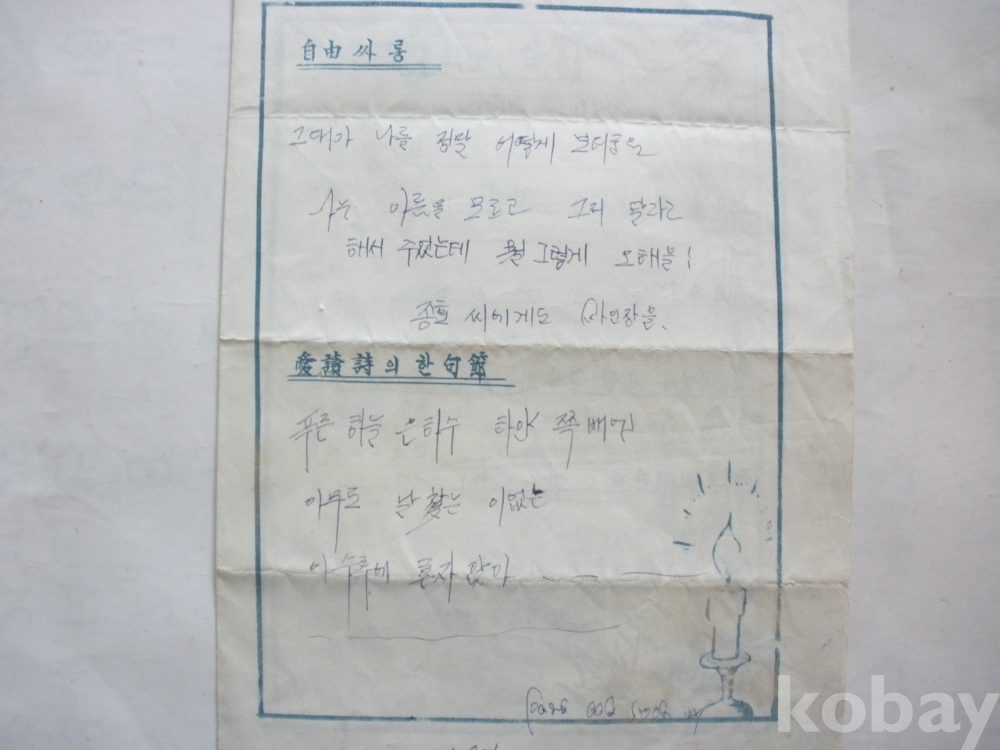 自由 싸롱
그대가 나를 정말 어떻게
나는 이름을 모르고 그저 달라고
해서 주었는데 뭘 그렇게 오해를!
씨에게도
愛讀詩의 한 句節
푸른 하늘 은하수 하얀 쪽배엔
아무도 날 찾는 이 없는
이 혼자 앉아
kobay